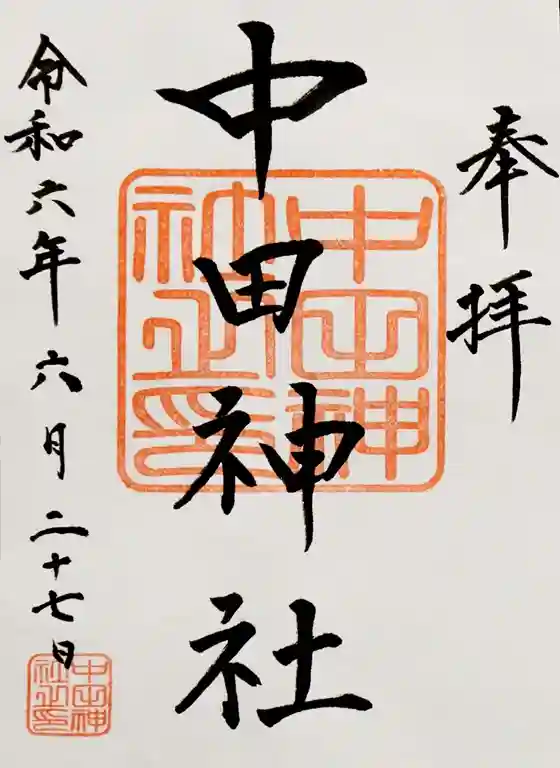 奉拝
中田神社
中田神社之印
令和六年六月二十七日
中田神社之印